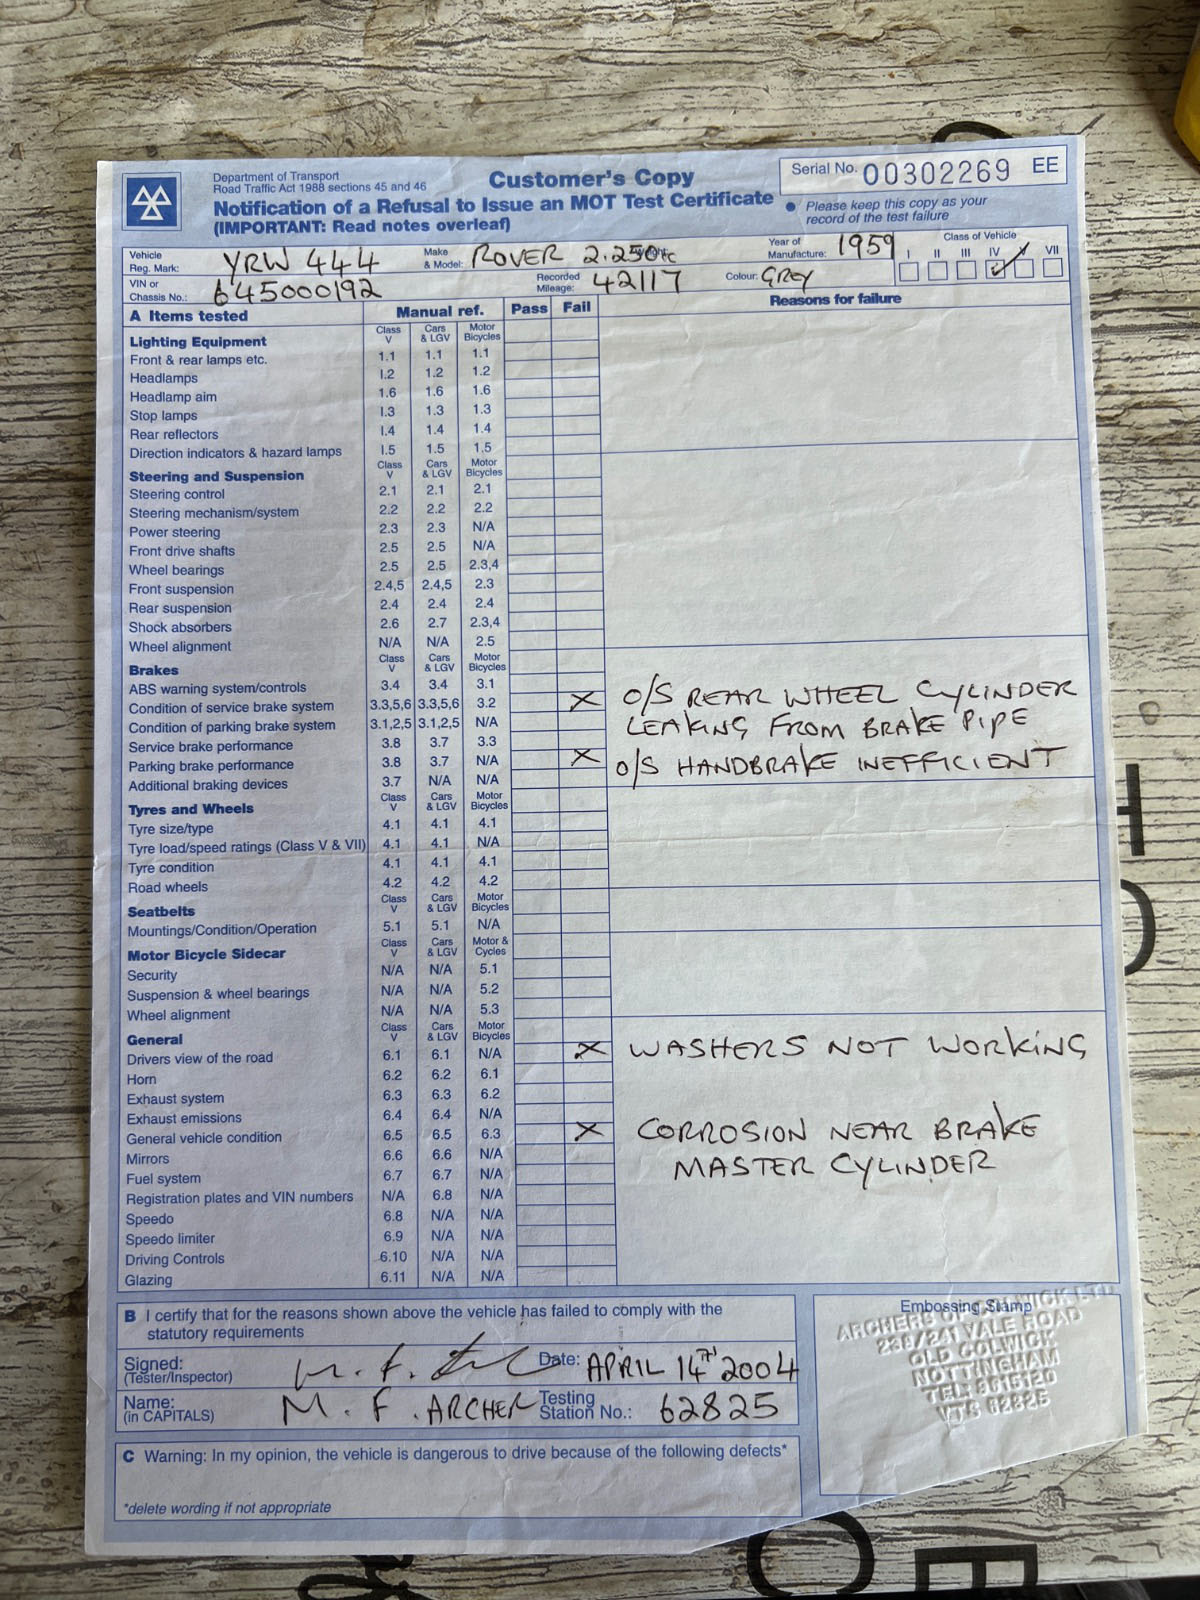 Department of Transport
Road Traffic Act 1988 sections 45 and 46
Customer's Copy
Serial No. 00302269 EE
Notification of a Refusal to Issue an MOT Test Certificate
(IMPORTANT: Read notes overleaf)
• Please keep this copy as your
record of the test failure
Vehicle
Reg. Mark: YRW 444
Make
& Model: ROVER 2.250
Year of
Manufacture: 1959
Class of Vehicle
I II III IV V VII
VIN or
Chassis No.: 645000192
Recorded
Mileage: 42117
Colour: GREY
A Items tested Manual ref. Pass Fail Reasons for failure
Lighting Equipment Class V Cars & LGV Motor Bicycles
Front & rear lamps etc. 1.1 1.1 1.1
Headlamps 1.2 1.2 1.2
Headlamp aim 1.6 1.6 1.6
Stop lamps 1.3 1.3 1.3
Rear reflectors 1.4 1.4 1.4
Direction indicators & hazard lamps 1.5 1.5 1.5
Steering and Suspension Class V Cars & LGV Motor Bicycles
Steering control 2.1 2.1 2.1
Steering mechanism/system 2.2 2.2 2.2
Power steering 2.3 2.3 N/A
Front drive shafts 2.5 2.5 N/A
Wheel bearings 2.5 2.5 2.3,4
Front suspension 2.4,5 2.4,5 2.3
Rear suspension 2.4 2.4 2.4
Shock absorbers 2.6 2.7 2.3,4
Wheel alignment N/A N/A 2.5
Brakes Class V Cars & LGV Motor Bicycles
ABS warning system/controls 3.4 3.4 3.1
Condition of service brake system 3.3,5,6 3.3,5,6 3.2 X O/S REAR WHEEL CYLINDER
LEAKING FROM BRAKE PIPE
Condition of parking brake system 3.1,2,5 3.1,2,5 N/A
Service brake performance 3.8 3.7 3.3
Parking brake performance 3.8 3.7 N/A X O/S HANDBRAKE INEFFICIENT
Additional braking devices 3.7 N/A N/A
Tyres and Wheels Class V Cars & LGV Motor Bicycles
Tyre size/type 4.1 4.1 4.1
Tyre load/speed ratings (Class V & VII) 4.1 4.1 N/A
Tyre condition 4.1 4.1 4.1
Road wheels 4.2 4.2 4.2
Seatbelts Class V Cars & LGV Motor Bicycles
Mountings/Condition/Operation 5.1 5.1 N/A
Motor Bicycle Sidecar Class V Cars & LGV Motor & Cycles
Security N/A N/A 5.1
Suspension & wheel bearings N/A N/A 5.2
Wheel alignment N/A N/A 5.3
General Class V Cars & LGV Motor Bicycles
Drivers view of the road 6.1 6.1 N/A X WASHERS NOT WORKING
Horn 6.2 6.2 6.1
Exhaust system 6.3 6.3 6.2
Exhaust emissions 6.4 6.4 N/A
General vehicle condition 6.5 6.5 6.3 X CORROSION NEAR BRAKE
MASTER CYLINDER
Mirrors 6.6 6.6 N/A
Fuel system 6.7 6.7 N/A
Registration plates and VIN numbers N/A 6.8 N/A
Speedo 6.8 N/A N/A
Speedo limiter 6.9 N/A N/A
Driving Controls 6.10 N/A N/A
Glazing 6.11 N/A N/A
B I certify that for the reasons shown above the vehicle has failed to comply with the
statutory requirements
Signed:
(Tester/Inspector)
Date: APRIL 14TH 2004
Name:
(in CAPITALS) M. F. ARCHER
Testing
Station No.: 62825
Embossing Stamp
ARCHERS OF COLWICK LTD
239/241 VALE ROAD
OLD COLWICK
NOTTINGHAM
TEL: 9615120
VTS 62825
C Warning: In my opinion, the vehicle is dangerous to drive because of the following defects*
*delete wording if not appropriate